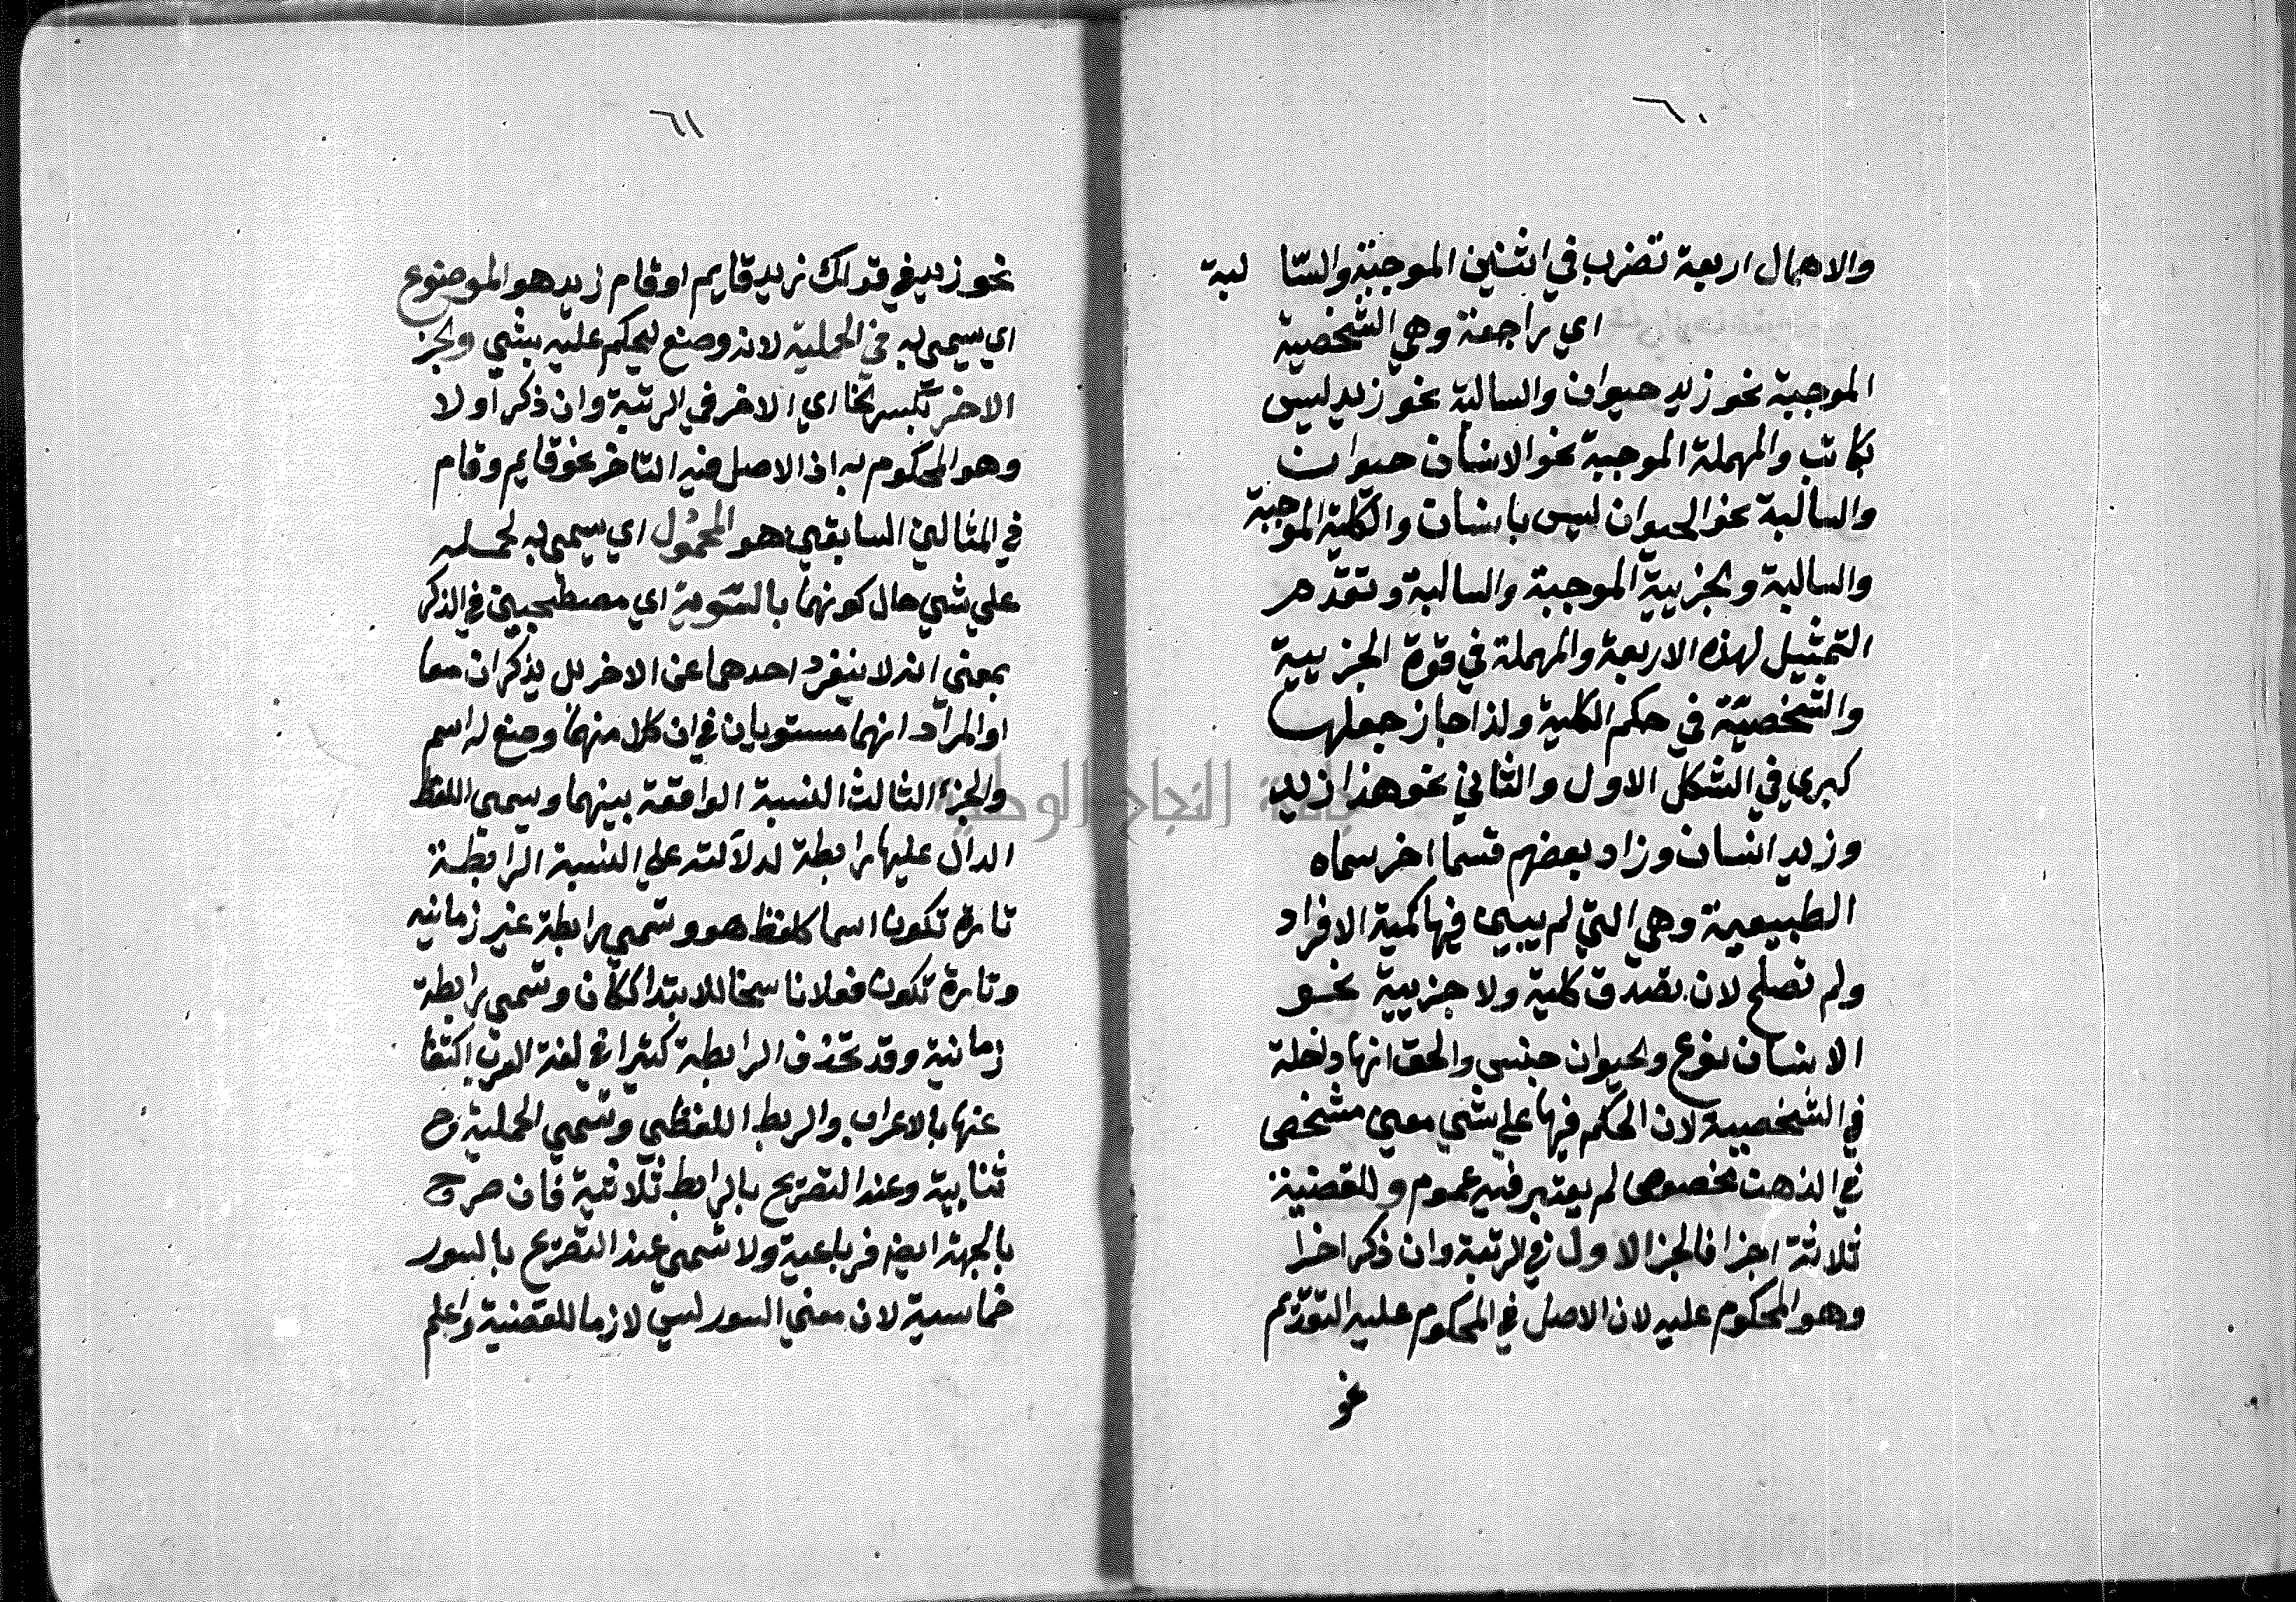 ٦٠
والاهمال اربعة تضرب في اثنين الموجبة والسا لبة
اي راجعة وهي الشخصية
الموجبة نحو زيد حيوان والسالبة نحو زيد ليس
بكاتب والمهملة الموجبة نحو الانسان حيوان
والسالبة نحو الحيوان ليس بانسان والكلية الموجبة
والسالبة والجزيية الموجبة والسالبة وتقدم
التمثيل لهذه الاربعة والمهملة في قوة الجزيية
والشخصية في حكم الكلية ولذا جاز جعلها
كبري في الشكل الاول والثاني نحو هذا زيد
وزيد انسان وزاد بعضهم قسما اخر سماه
الطبيعية وهي التي لم يبين فيها كمية الافراد
ولم تصلح لان تصدق كلية ولا جزيية نحو
الانسان نوع والحيوان جنس والحق انها داخلة
في الشخصية لان الحكم فيها علي شي معين مشخص
في الذهن مخصوص لم يعتبر فيه عموم وللقضية
ثلاثة اجزا فالجز الاول في الرتبة وان ذكر اخرا
وهو المحكوم عليه لان الاصل في المحكوم عليه التقديم
نحو
٦١
نحو زيد في قولك زيد قايم او قام زيد هو الموضوع
اي سيمي به في الحملية لانه وضع ليحكم عليه بشي والجز
الاخر بكسر الخا اي الاخر في الرتبة وان ذكر اولا
وهو المحكوم به اذ الاصل فيه التاخر نحو قايم وقام
في المثالين السابقين هو المحمول اي سيمي به لحمله
علي شي حال كونهما بالسوية اي مصطحبين في الذكر
بمعني انه لا ينفرد احدهما عن الاخر بل يذكران معا
او المراد انهما مستويان في ان كل منهما وضع له اسم
والجزء الثالث النسبة الواقعة بينهما وسمي اللفظ
الدال عليها رابطة لدلالته علي النسبة الرابطة
تارة تكون اسما كلفظ هو وتسمي رابطة غير زمانيه
وتارة تكون فعلا ناسخا للابتدا ككان وتسمي رابطة
زمانية وقد تحذف الرابطة كثيرا في لغة العرب اكتفا
عنها بالاعراب والربط اللفظي وتسمي الحملية ح
ثنايية وعند التصريح بالرابط ثلاثية فان صرح
بالجهة ايض فرباعية ولا تسمي عند التصريح بالسور
خماسية لان معني السور ليس لازما للقضية واعلم
جامعة النجاح الوطنية